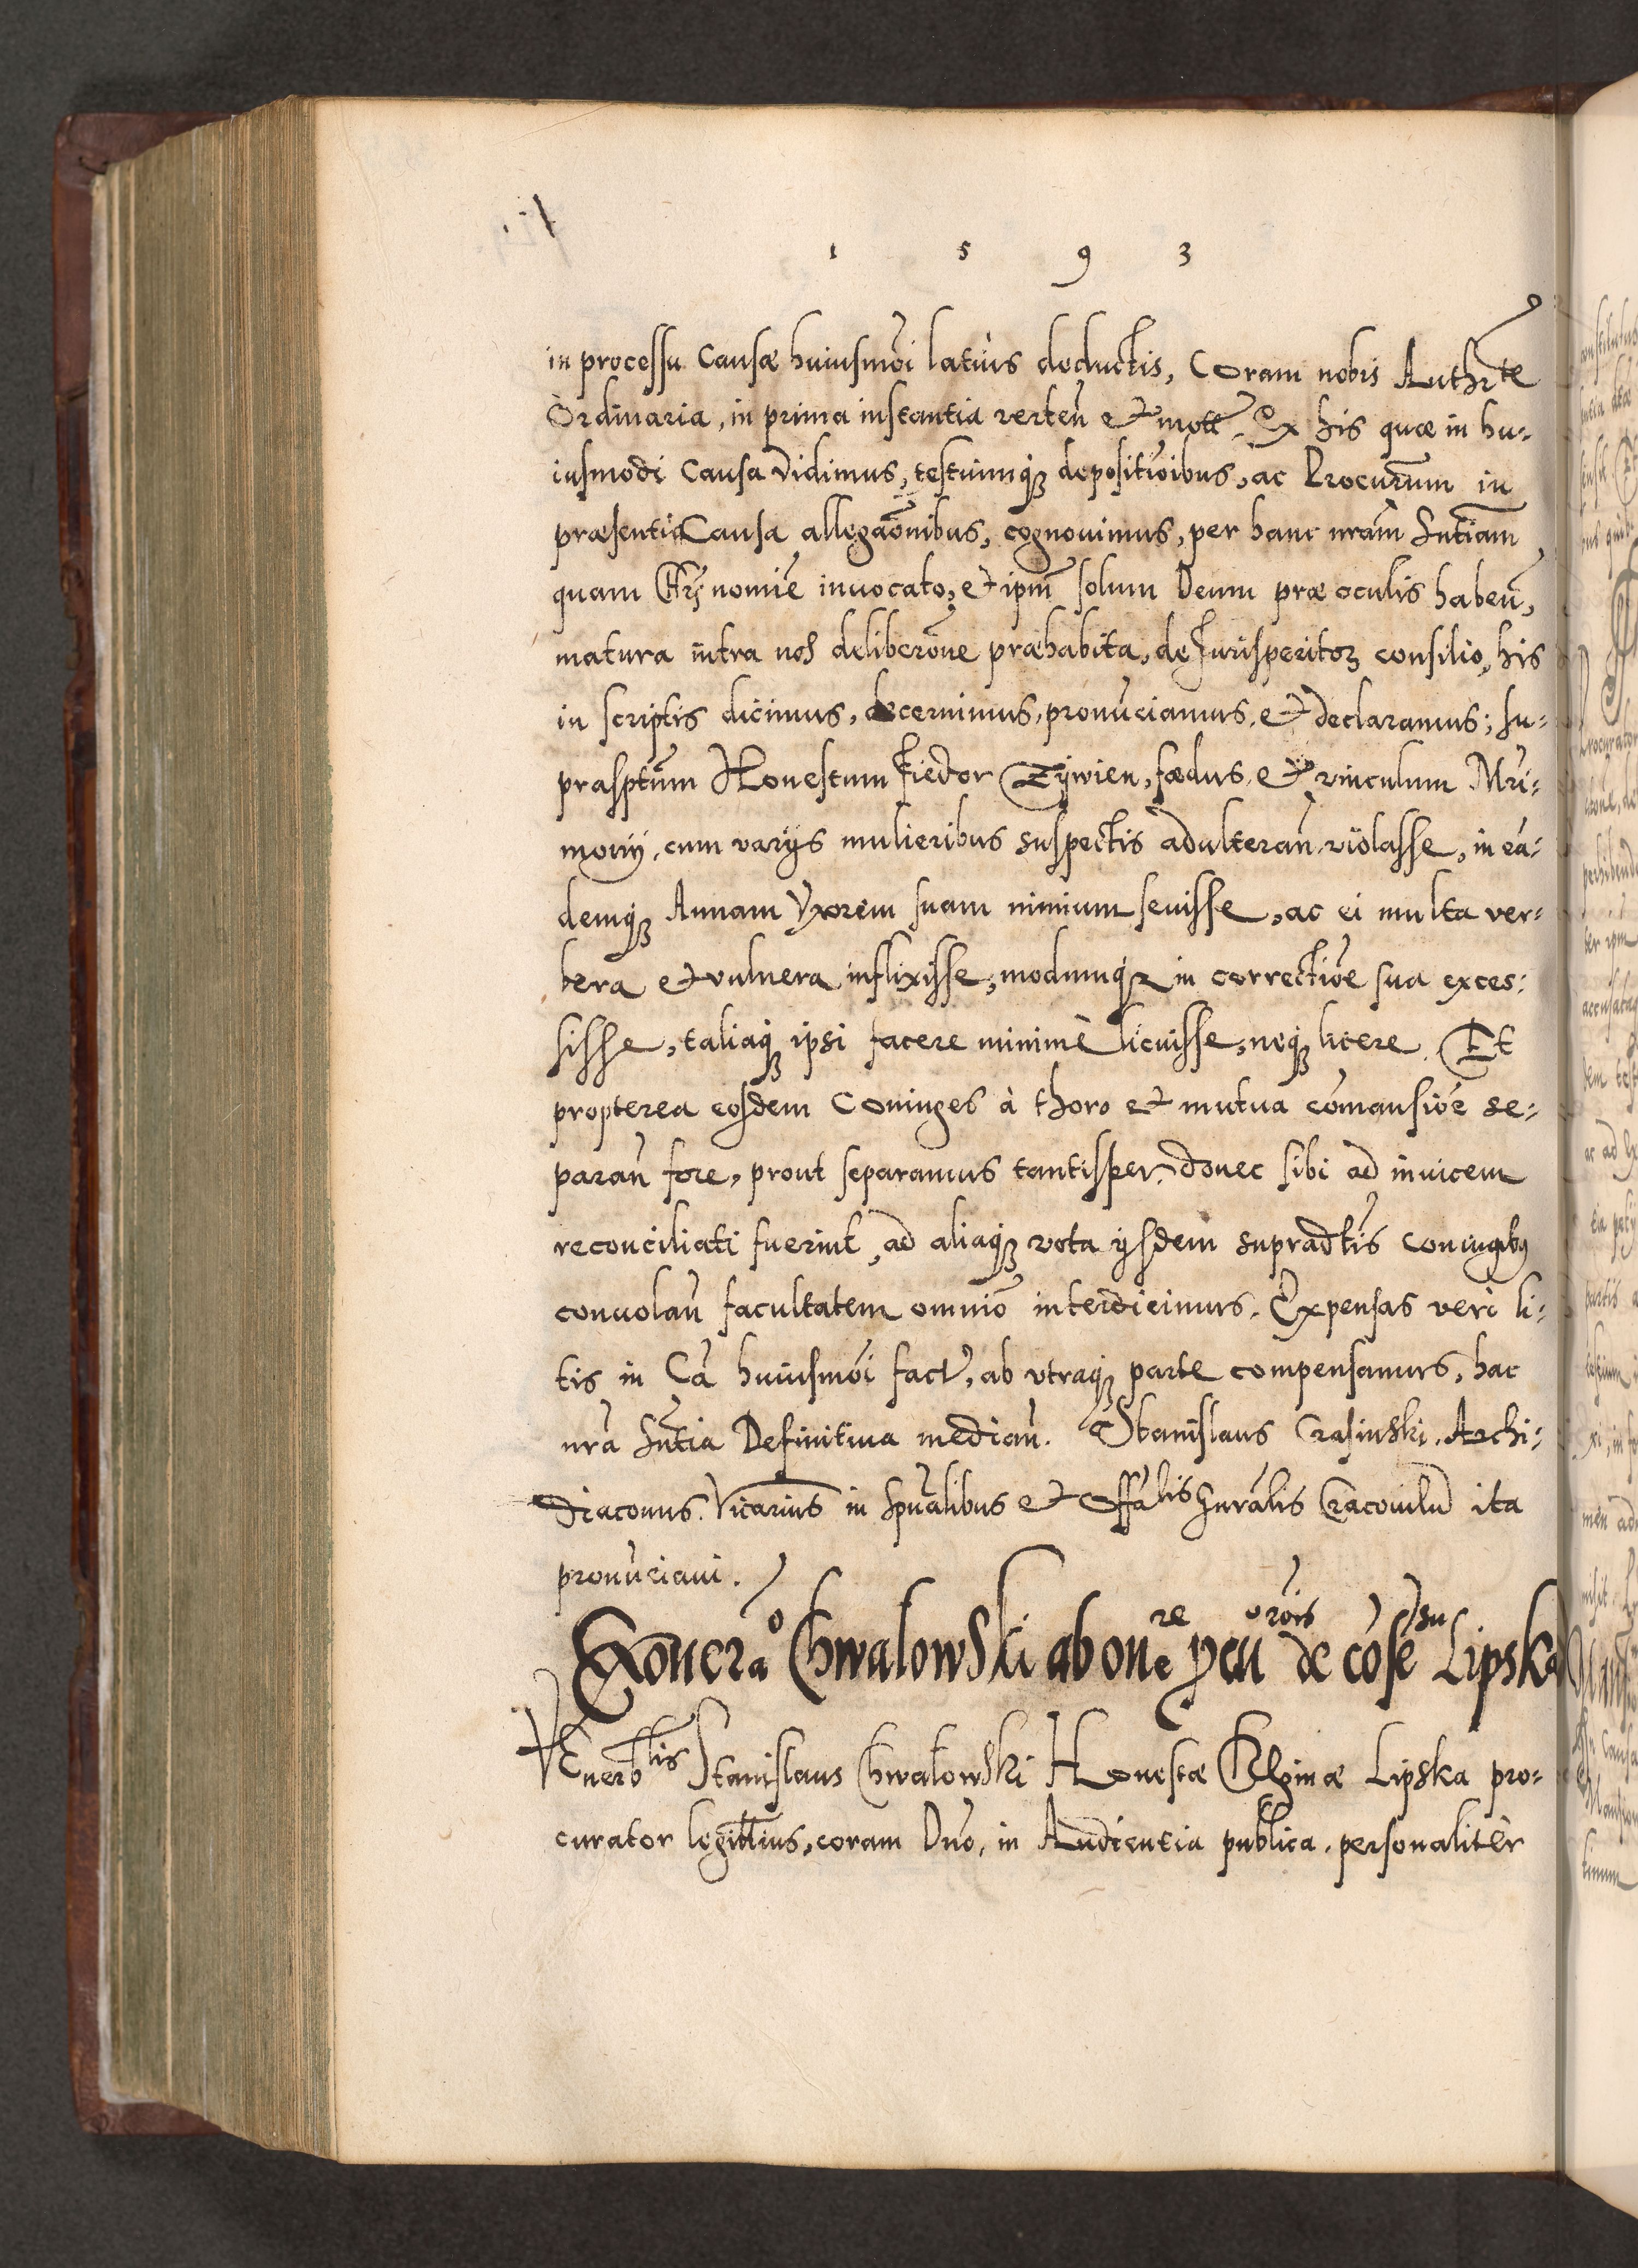 1 5 9 3
in processu Causæ huiusmõi latius deductis, Coram nobis Authrte
Ordinaria, in prima instantia verteñ et mott. Ex his quæ in hu-
iusmodi Causa vidimus, testiumq depositioibus, ac Procurum in
præsenti Causa allegaonibus, cognouimus, per hanc nram Sntiam
quam Chri nomie inuocato, et ipm solum Deum præ oculis habeñ,
matura intra nos deliberone præhabita, de Jurisperitor consilio, his
in scriptis dicimus, decernimus, pronuciamus, et declaramus; su-
prasptum Honestum Fiedor Tywien, fœdus et vinculum Mri-
monij, cum varijs mulieribus suspectis adulterañ violasse, in eã-
demq Annam Vxorem suam nimium seuisse, ac ei multa ver-
bera et vulnera inflixisse, modumq in correctioe sua exces-
sisse, taliaq ipsi facere minimè licuisse, neq licere. Et
propterea eosdem Coniuges à thoro et mutua comansioe se-
parañ fore, prout separamus tantisper, donec sibi ad inuicem
reconciliati fuerint, ad aliaq vota ijsdem supradtis coniugibus
conuolañ facultatem omnio interdicimus. Expensas veri li-
tis in Ca huiusmõi fact, ab vtraq parte compensamus, hac
nra Sntia Definitiua mediañ. Stanislaus Crasinski, Archi-
diaconus. Vicarius in Spualibus et Offalis Gnralis Cracouien ita
pronuciaui.
Exonerao Chwalowski ab onere pcuorois de cose su Lipska
VEnerblis Stanislaus Chwalowski Honestæ Reginæ Lipska pro-
curator legittius, coram Dno, in Audientia publica, personalitèr